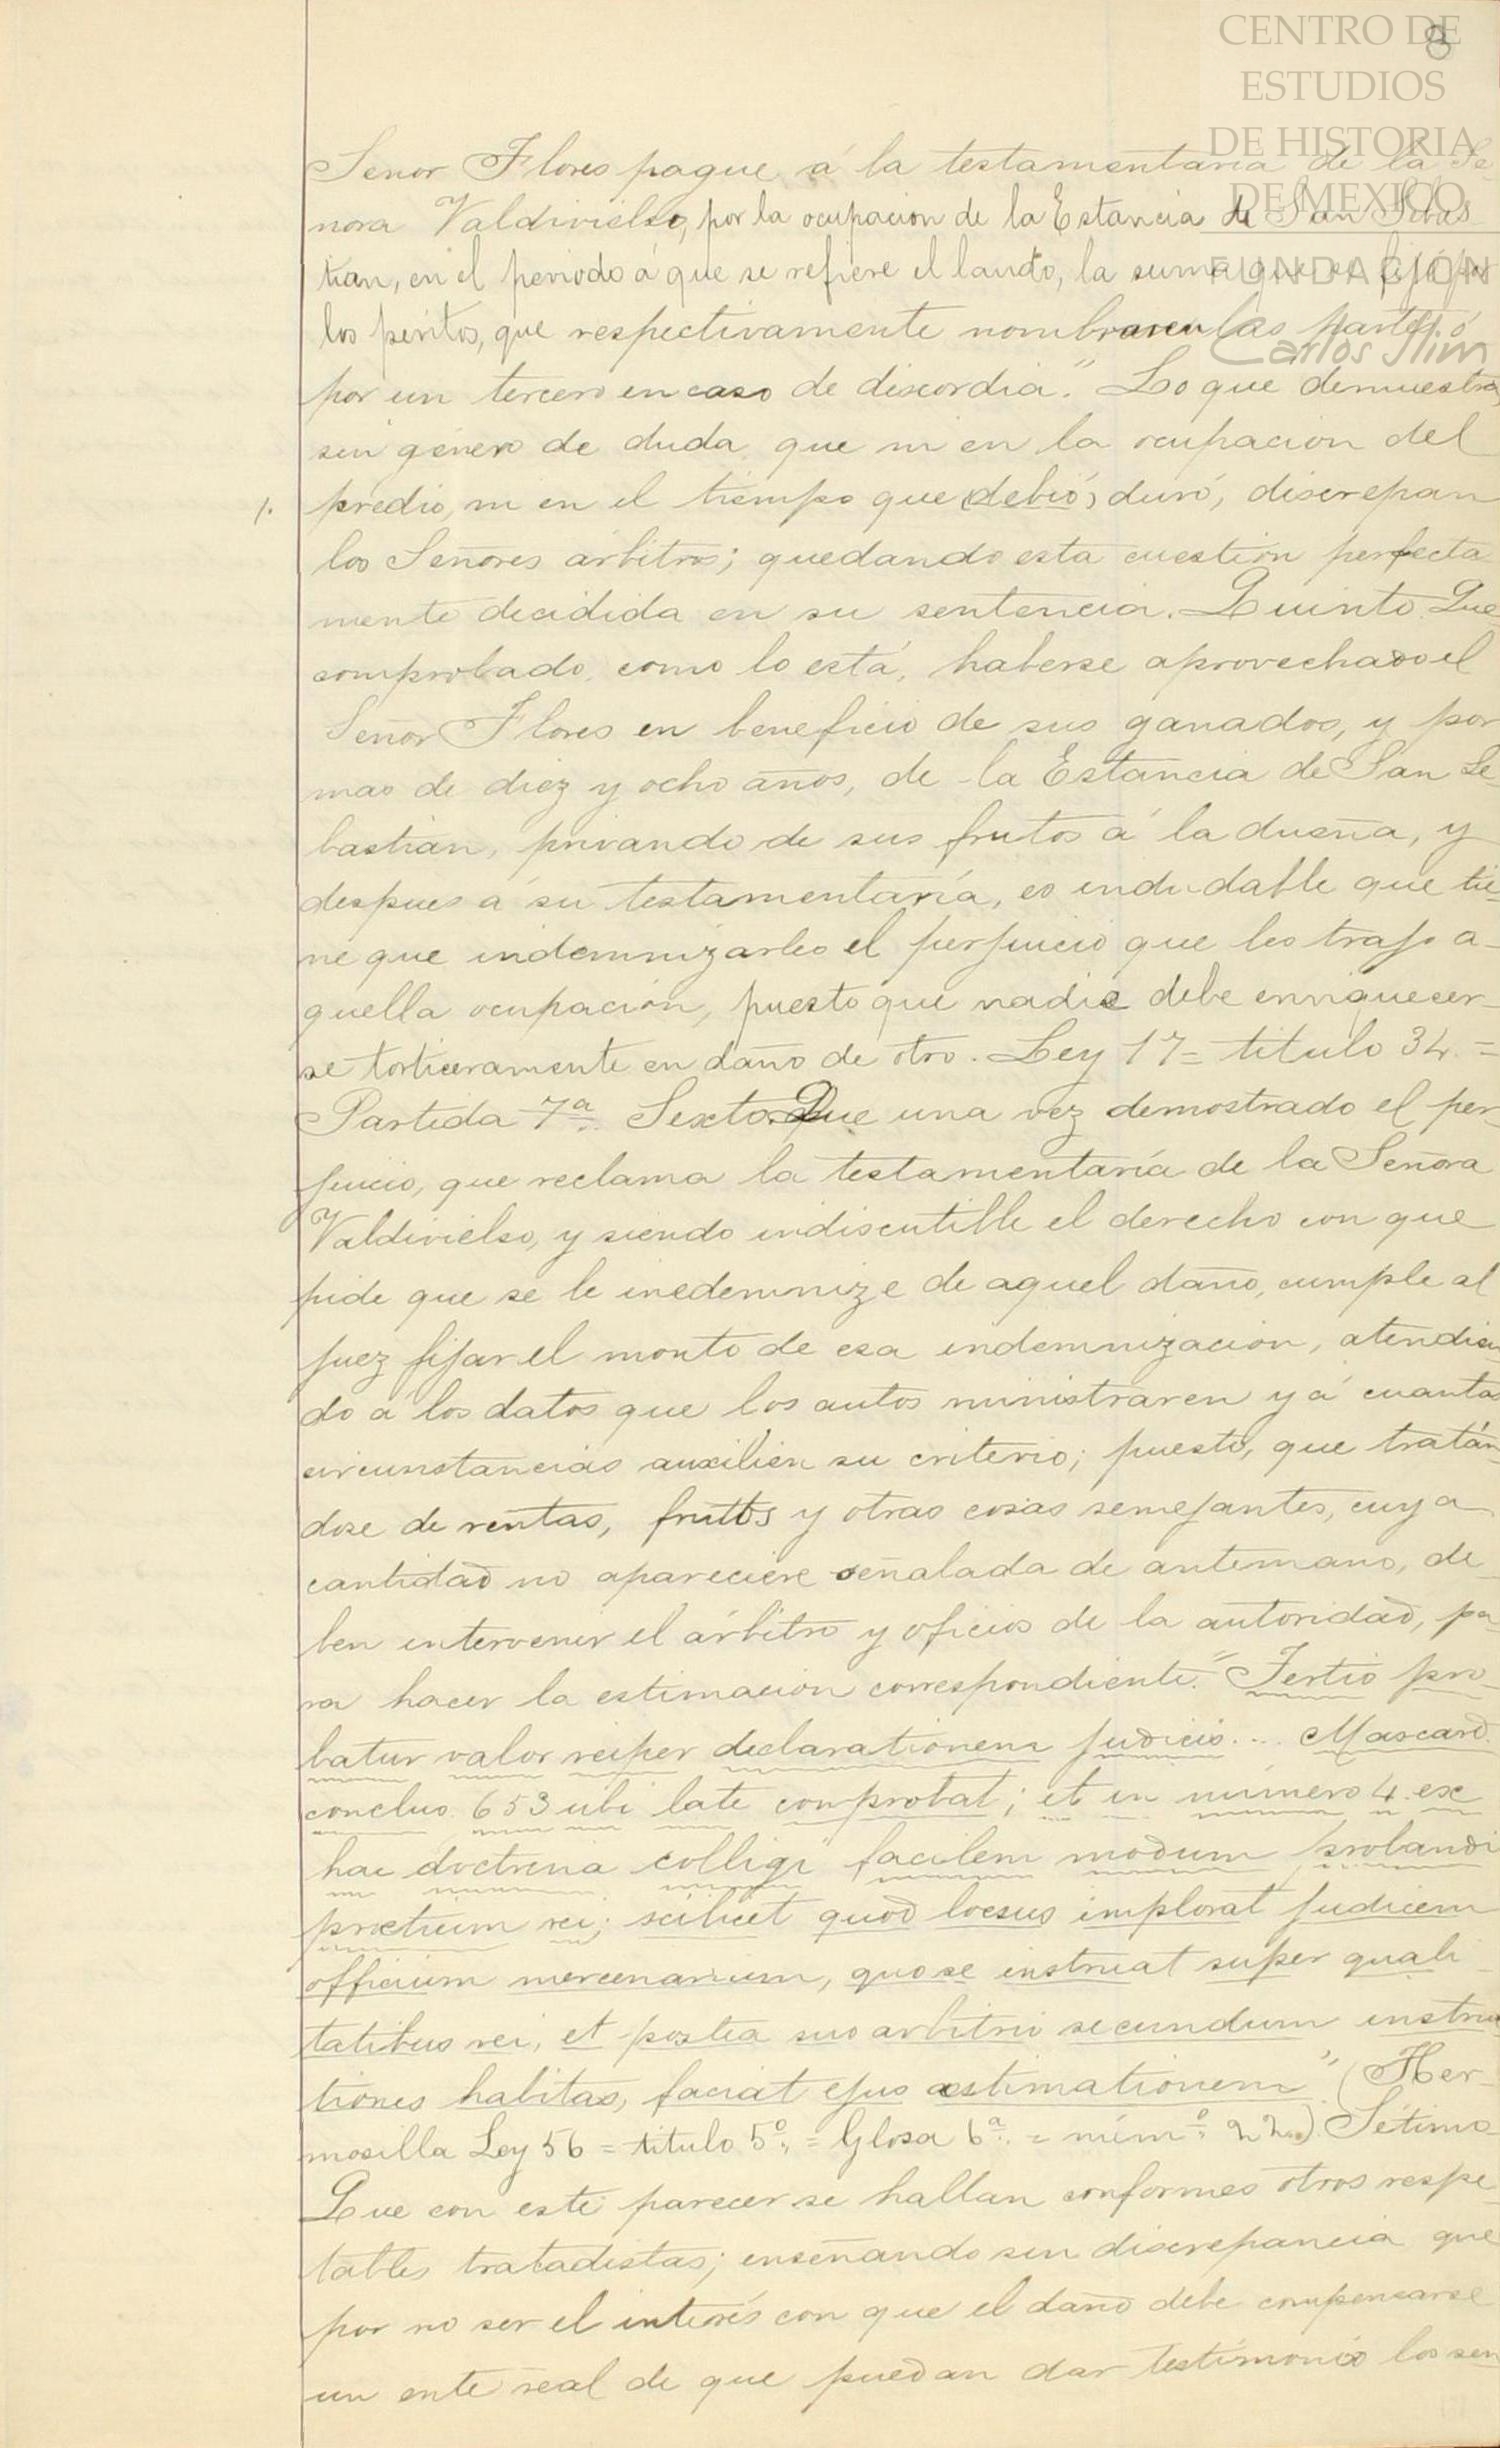 CENTRO DE
ESTUDIOS
DE HISTORIA
DE MEXICO
FUNDACIÓN
Carlos Slim
8
Señor Flores pague á la testamentaría de la Se-
ñora Valdivielso, por la ocupacion de la Estancia de San Sebas-
tian, en el periodo á que se refiere el laudo, la suma que se fije por
los peritos, que respectivamente nombraren las partes, ó
por un tercero en caso de discordia." Lo que demuestra,
sin género de duda, que ni en la ocupacion del
1. predio, ni en el tiempo que (debió) duró, discrepan
los Señores árbitros; quedando esta cuestión perfecta
mente decidida en su sentencia. Quinto. Que
comprobado, como lo está, haberse aprovechado el
Señor Flores en beneficio de sus ganados, y por
mas de diez y ocho años, de la Estancia de San Se
bastián, privando de sus frutos á la dueña, y
despues á su testamentaría, es indudable que tie-
ne que indemnizarles el perjuicio que les trajo a-
quella ocupación, puesto que nadie debe enriquecer-
se torticeramente en daño de otro. Ley 17 = titulo 34. =
Partida 7ª. Sexto. Que una vez demostrado el per-
juicio, que reclama la testamentaría de la Señora
Valdivielso, y siendo indiscutible el derecho con que
pide que se le inedemnize de aquel daño, cumple al
juez fijar el monto de esa indemnización, atendien
do á los datos que los autos ministraren y á cuantas
circunstancias auxilien su criterio; puesto, que tratán-
dose de rentas, frutos y otras cosas semejantes, cuya
cantidad no apareciere señalada de antemano, de
ben intervenir el árbitro y oficios de la autoridad, pa-
ra hacer la estimación correspondiente. "Tertio pro-
batur valor rei per declarationem judicis.... Mascard.
conclus. 653 ubi late comprobat; et in número 4. exc
hac doctrina colligi facilem modum probandi
prœtium rei; scilicet quod loesus implorat judicem
officium mercenarium, quo se instruat super quali
tatibus rei, et postea suo arbitrio secundum instruc
tiones habitas, faciat ejus œstimationem" (Her-
mosilla Ley 56 = titulo 5º. = Glosa 6ª. = númº. 22.) Sétimo
Que con este parecer se hallan conformes otros respe
tables tratadistas; enseñando sin discrepancia que
por no ser el interés con que el daño debe compensarse
un ente real de que puedan dar testimonio los sen